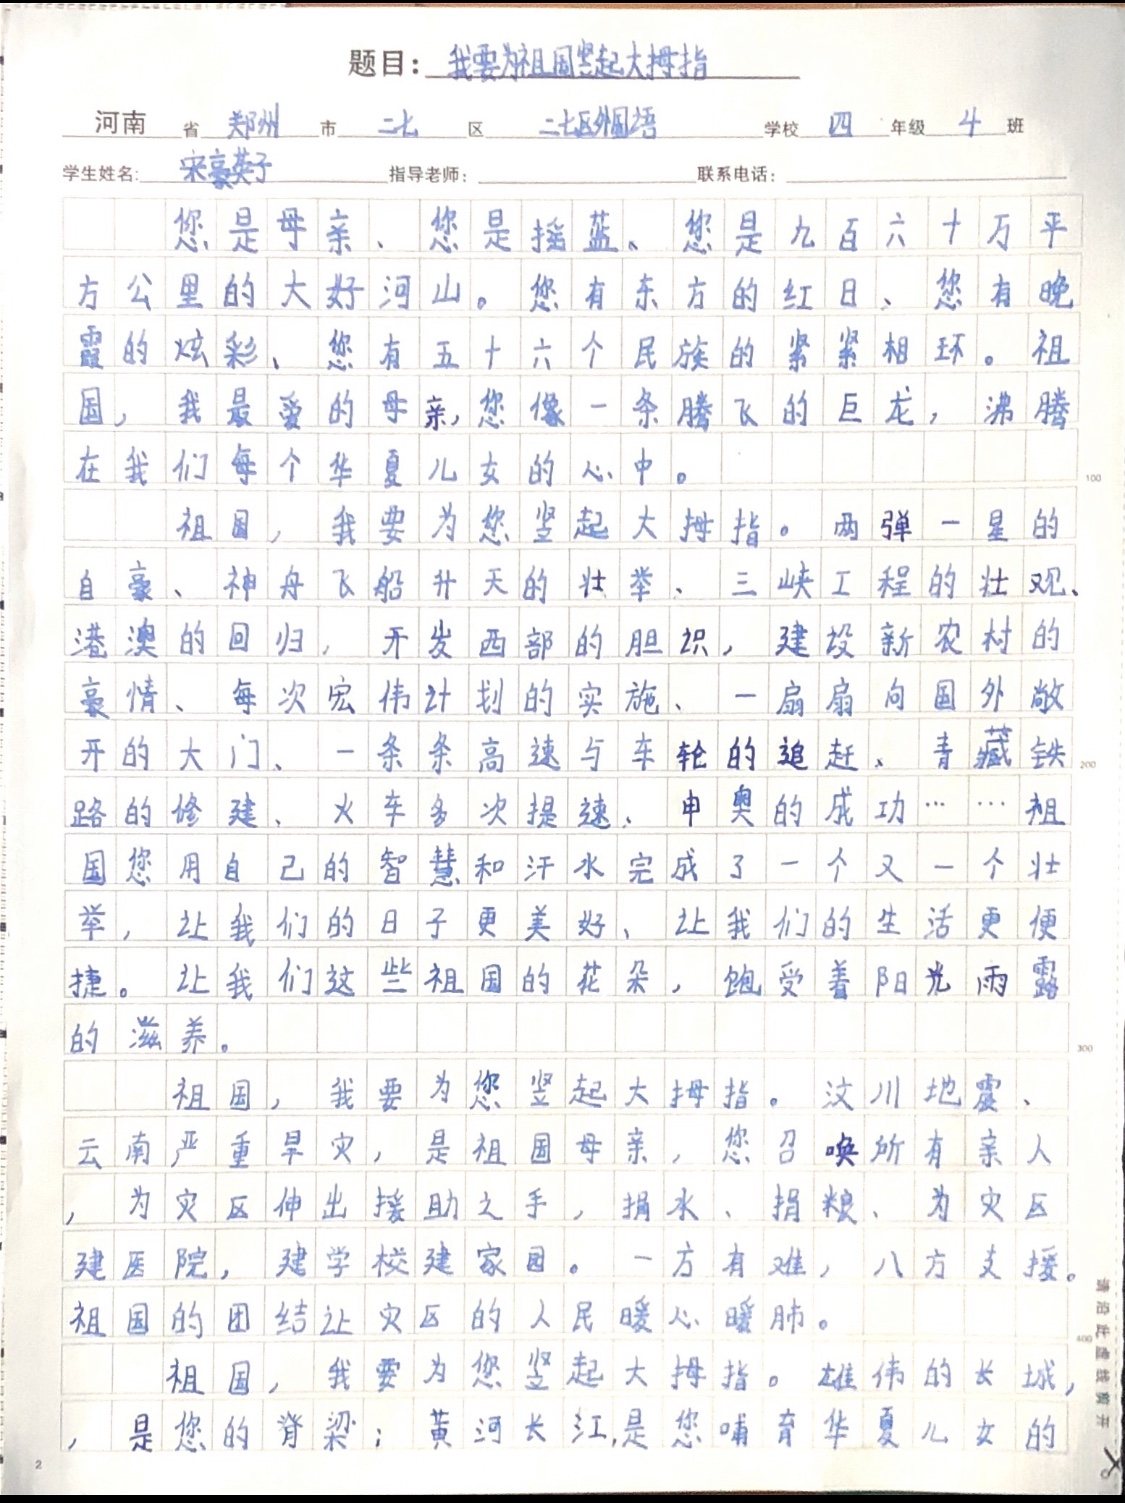 题目：我要为祖国竖起大拇指
河南 省 郑州 市 二七 区 二七区外国语 学校 四 年级 4 班
学生姓名: 宋豪英子 指导老师: 联系电话:
您是母亲、您是摇蓝、您是九百六十万平
方公里的大好河山。您有东方的红日、您有晚
霞的炫彩、您有五十六个民族的紧紧相环。祖
国，我最爱的母亲，您像一条腾飞的巨龙，沸腾
在我们每个华夏儿女的心中。
100
祖国，我要为您竖起大拇指。两弹一星的
自豪、神舟飞船升天的壮举、三峡工程的壮观、
港澳的回归，开发西部的胆识，建设新农村的
豪情、每次宏伟计划的实施、一扇扇向国外敞
开的大门、一条条高速与车轮的追赶、青藏铁
200
路的修建、火车多次提速、申奥的成功……祖
国您用自己的智慧和汗水完成了一个又一个壮
举，让我们的日子更美好、让我们的生活更便
捷。让我们这些祖国的花朵，饱受着阳光雨露
的滋养。
300
祖国，我要为您竖起大拇指。汶川地震、
云南严重旱灾，是祖国母亲，您召唤所有亲人
，为灾区伸出援助之手，捐水、捐粮、为灾区
建医院，建学校建家园。一方有难，八方支援。
祖国的团结让灾区的人民暖心暖肺。
400
祖国，我要为您竖起大拇指。雄伟的长城，
，是您的脊梁；黄河长江，是您哺育华夏儿女的
2
请沿此虚线剪开